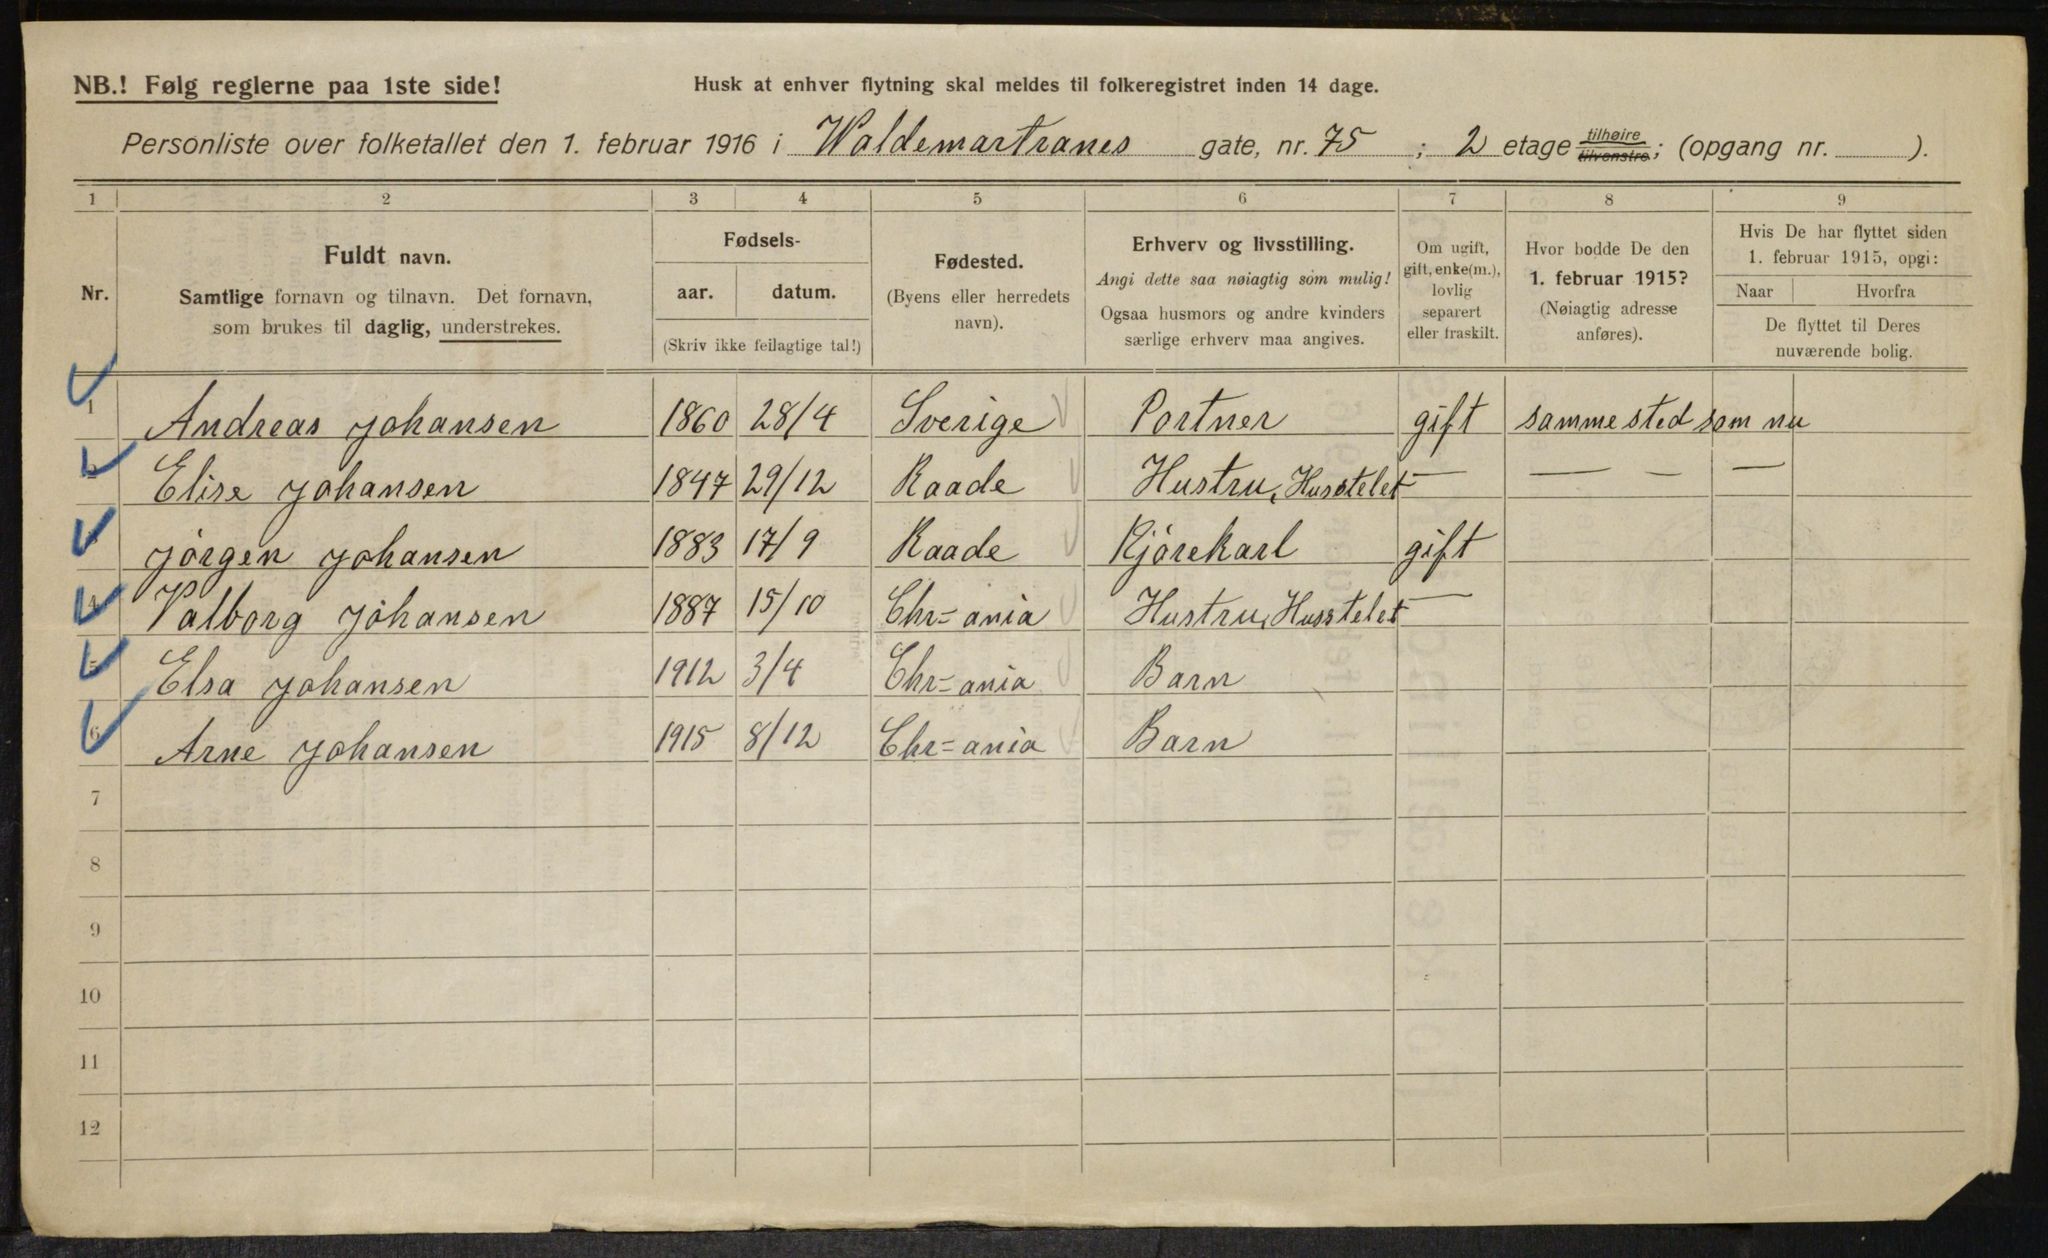 NB.! Følg reglerne paa 1ste side!
Husk at enhver flytning skal meldes til folkeregistret inden 14 dage.
Personliste over folketallet den 1. februar 1916 i Waldemartranes gate, nr. 75 ; 2 etage tilhøire tilvenstre; (opgang nr. ).
1 2 3 4 5 6 7 8 9
Nr.
Fuldt navn.
Samtlige fornavn og tilnavn. Det fornavn,
som brukes til daglig, understrekes.
Fødsels-
aar. datum.
(Skriv ikke feilagtige tal!)
Fødested.
(Byens eller herredets
navn).
Erhverv og livsstilling.
Angi dette saa nøiagtig som mulig!
Ogsaa husmors og andre kvinders
særlige erhverv maa angives.
Om ugift,
gift, enke(m.),
lovlig
separert
eller fraskilt.
Hvor bodde De den
1. februar 1915?
(Nøiagtig adresse
anføres).
Hvis De har flyttet siden
1. februar 1915, opgi:
Naar Hvorfra
De flyttet til Deres
nuværende bolig.
1 Andreas Johansen 1860 28/4 Sverige Portner gift samme sted som nu
2 Elise Johansen 1847 29/12 Raade Hustru, Husstelet — — — —
3 Jörgen Johansen 1883 17/9 Raade Kjörekarl gift
4 Valborg Johansen 1887 15/10 Chr=ania Hustru, Husstelet —
5 Elsa Johansen 1912 3/4 Chr=ania Barn
6 Arne Johansen 1915 8/12 Chr=ania Barn
7
8
9
10
11
12